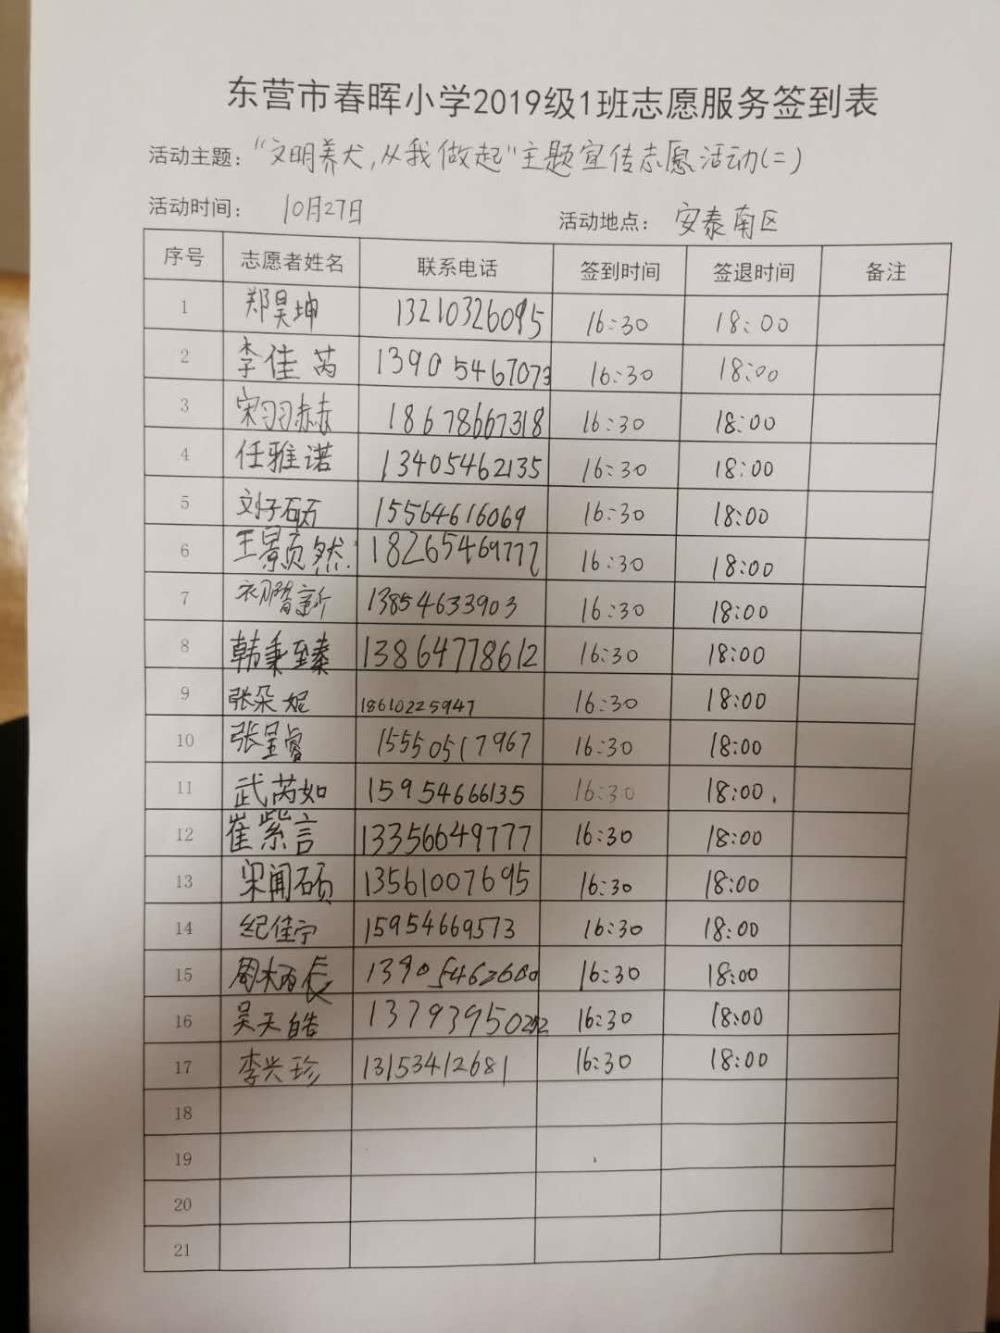 东营市春晖小学2019级1班志愿服务签到表
活动主题："文明养犬,从我做起"主题宣传志愿活动(二)
活动时间： 10月27日 活动地点： 安泰南区
序号 志愿者姓名 联系电话 签到时间 签退时间 备注
1 郑昊坤 13210326095 16:30 18:00
2 李佳芮 13905467073 16:30 18:00
3 宋羽赫 18678667318 16:30 18:00
4 任雅诺 13405462135 16:30 18:00
5 刘子硕 15564616069 16:30 18:00
6 王景贞然 18265469777 16:30 18:00
7 13854633903 16:30 18:00
8 韩秉臻 13864778612 16:30 18:00
9 张朵妮 18610225947 16:30 18:00
10 张呈睿 15550517967 16:30 18:00
11 武芮如 15954666135 16:30 18:00
12 崔紫言 13356649777 16:30 18:00
13 宋闻硕 13561007695 16:30 18:00
14 纪佳宁 15954669573 16:30 18:00
15 13905462680 16:30 18:00
16 吴天皓 16:30 18:00
17 李兴珍 13153412681 16:30 18:00
18
19
20
21